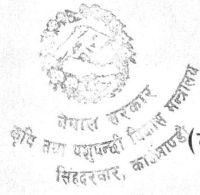 नेपाल सरकार
कृषि तथा पशुपन्छी विकास मन्त्रालय
सिंहदरबार, काठमाण्डौ
(